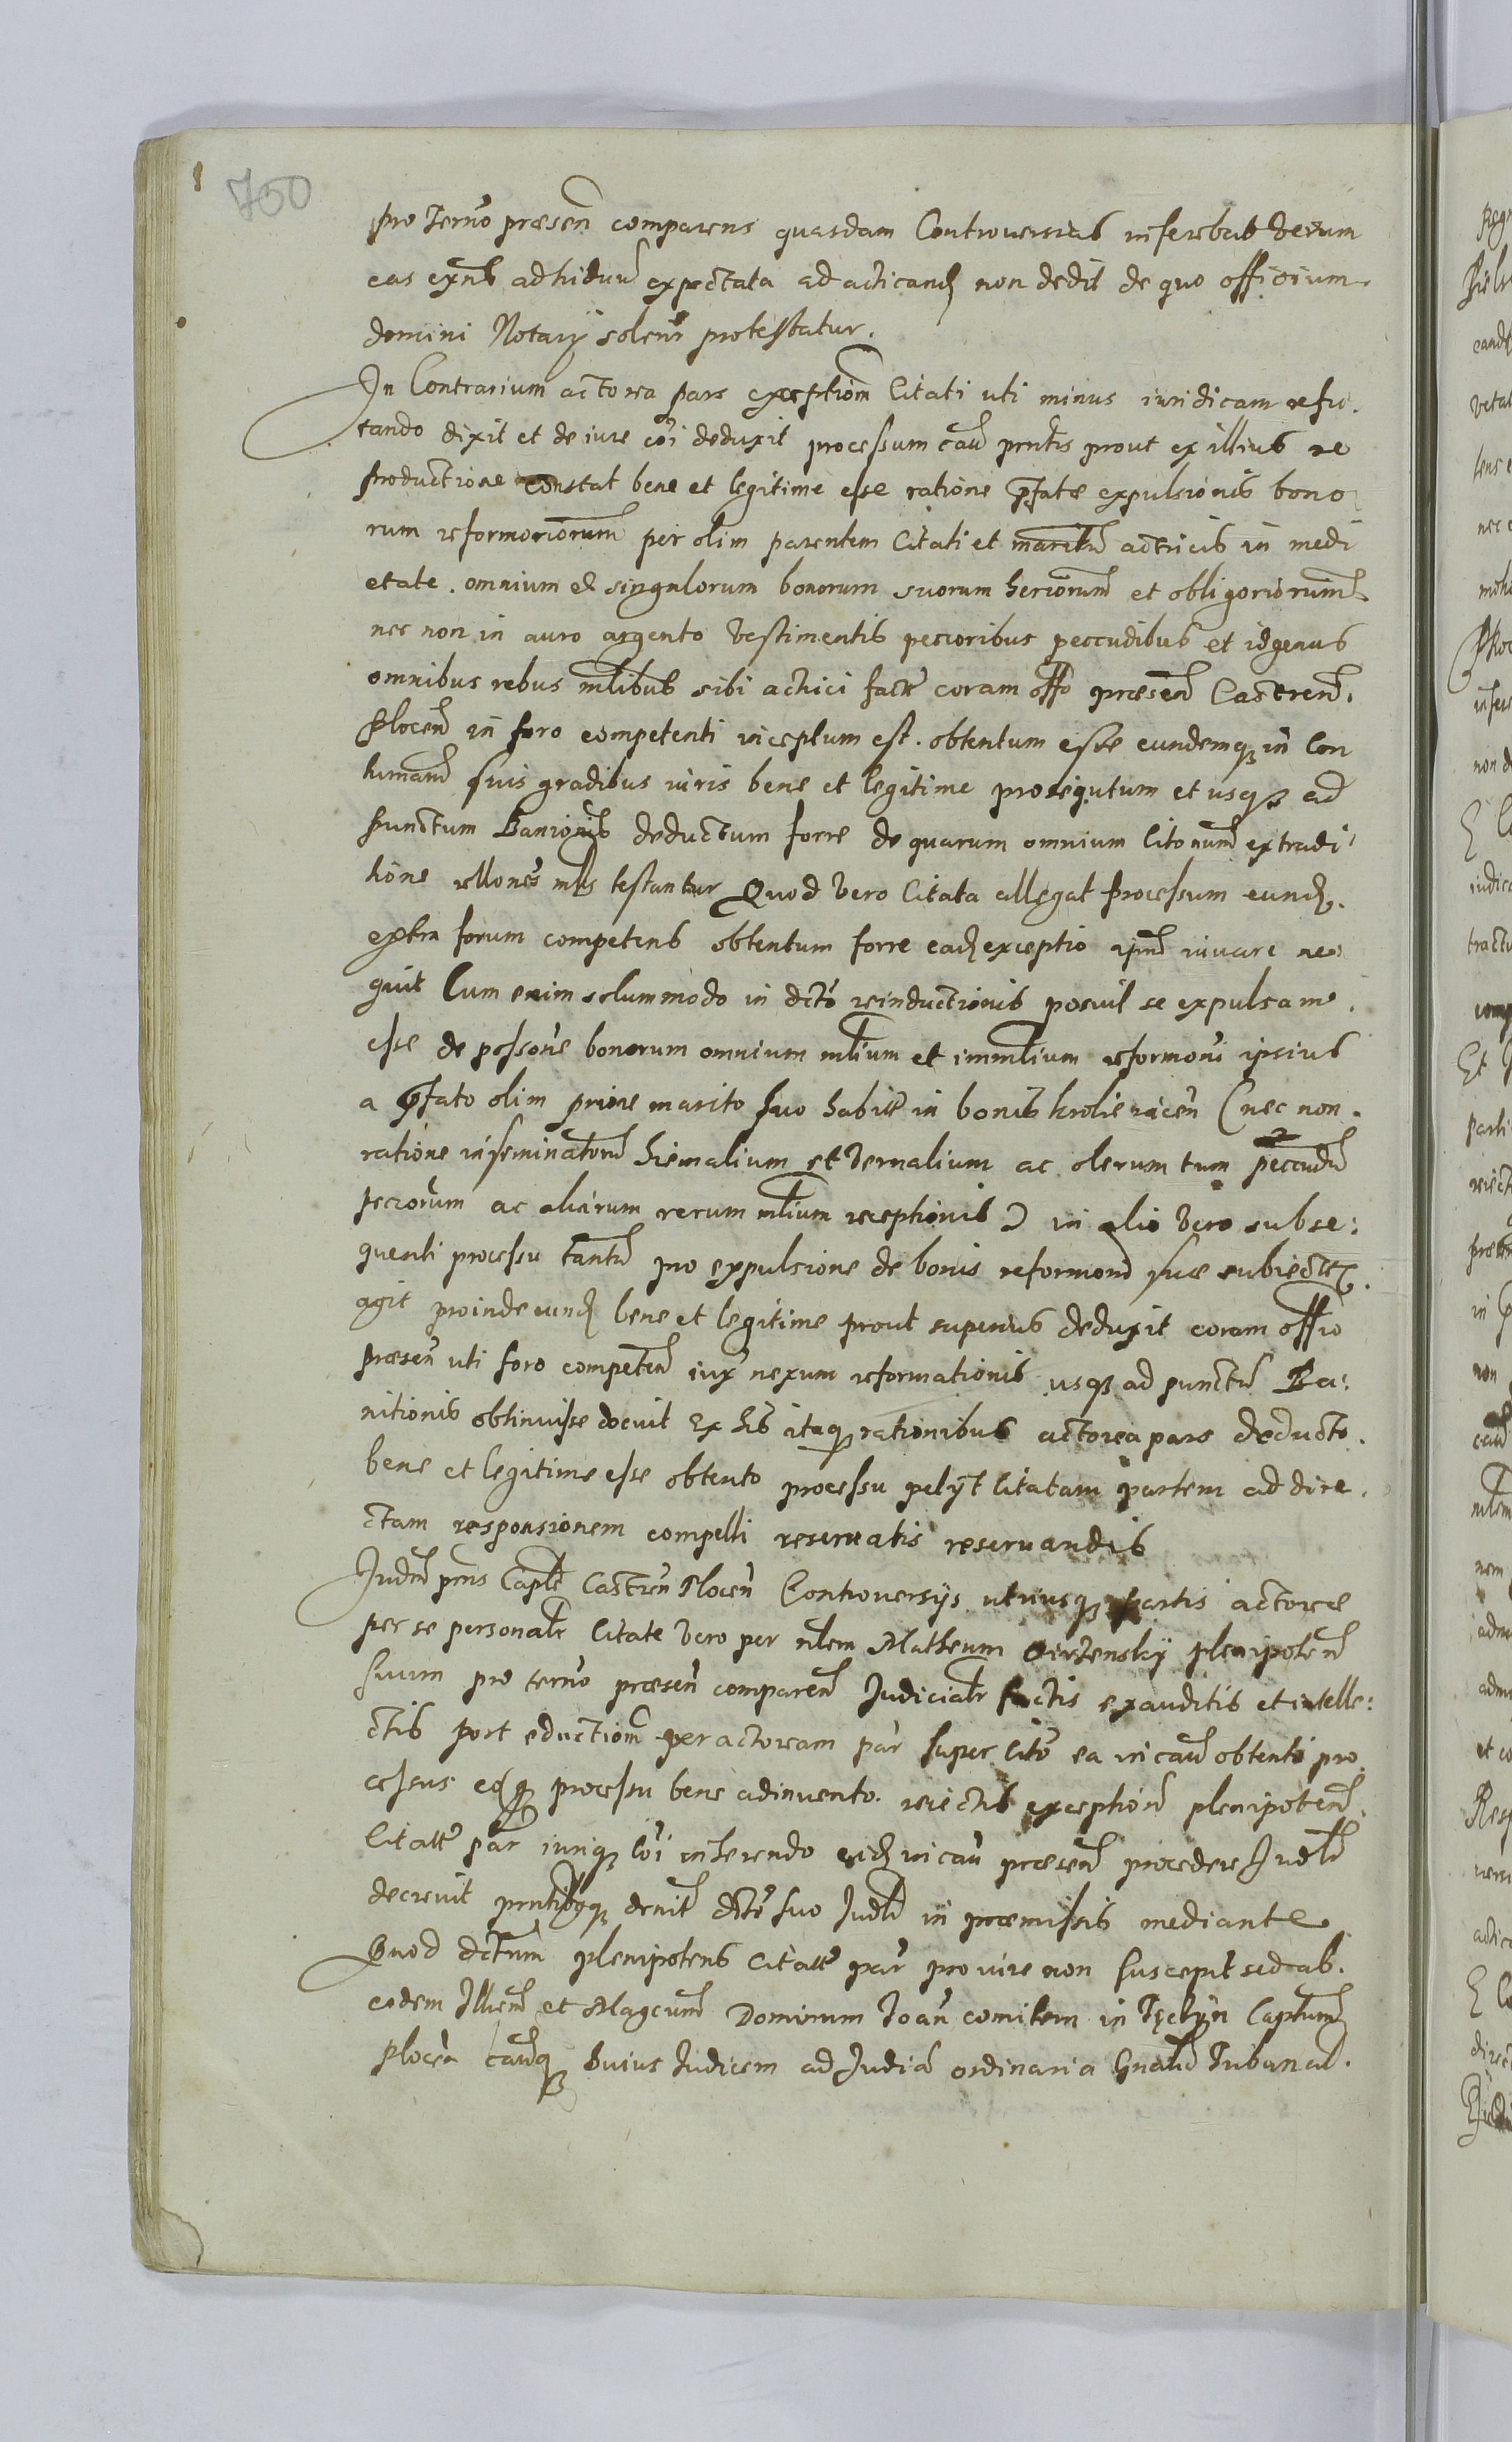 750
pro termo præsen comparens quasdam Controversias inferebat verum
eas exnt ad hiduu expectata ad acticand non dedit de quo officium
domini Notarij solenr protestatur.
In Contrarium actorea pars exceptiom Citati uti minus iuridicam refu-
tando dixit et de iure coi deduxit processum cau prntis prout ex illius re
productione constat bene et legitime esse ratione pfatæ expulsionis bono
rum reformoriorum per olim parentem Citati et maritu actricis in medi
etate omnium et singulorum bonorum suorum heriorum et obligoriorum
nec non in auro argento vestimentis peccoribus peccudibus et idgenus
omnibus rebus mlibus sibi actrici factæ coram offo præsen Castren.
Plocen in foro competenti inceptum est. obtentum esse eundemq in Con
tumam suis gradibus iuris bene et legitime prosequtum et usq ad
punctum Banionis deductum forre de quarum omnium Citonum extradi
tione rllones mls testantur Quod vero Citata allegat Processum eund.
extra forum competens obtentum forre ead exceptio ipm iuvare ne
quit Cum enim solummodo in dcto reinductionis posuit se expulsam
esse de possone bonorum omnium mlium et immlium reformoni ipsius
a pfato olim priore marito suo habitæ in bonis Krolie (nec non
ratione inseminatoru hiemalium et vernalium ac olerum tum peccudu
peccorum ac aliarum rerum mlium receptionis) in alio vero subse:
quenti processu tantu pro expulsione de bonis reformon suæ subiectæ
agit proinde eund bene et legitime prout superius deduxit coram offio
præsen uti foro competen iux nexum reformationis usq ad punctu Ba:
nitionis obtinuisse docuit Ex his itaq rationibus actorea pars deducto
bene et legitime esse obtento processu petijt Citatam partem ad dire
ctam responsionem compelli reservatis reservandis
Judm pns Caple Castren Plocen Controversijs utriusq partis actoreæ
per se personalr Citatæ vero per nlem Matheum plenipoten
suum pro termo præsen comparen Judicialr factis exauditis et intelle:
ctis post eductiom per actoream par super Cito ea in cau obtenti pro
cessus eoq processu bene adinvento reiectis exceptiom plenipoten
Citatæ par iuriq Coi inherendo eid in cau præsen procedere Judl
decrevit prntibusq dcto suo Judli in præmissis mediante
Quod dctum plenipotens Citatæ par pro iure non suscepit sed ab
eodem Illrem et Magcum Dominum Joan comitem in Tęczyn Captum
Plocen cauq huius Judicem ad Judia ordinaria Gnalia Tribunal.